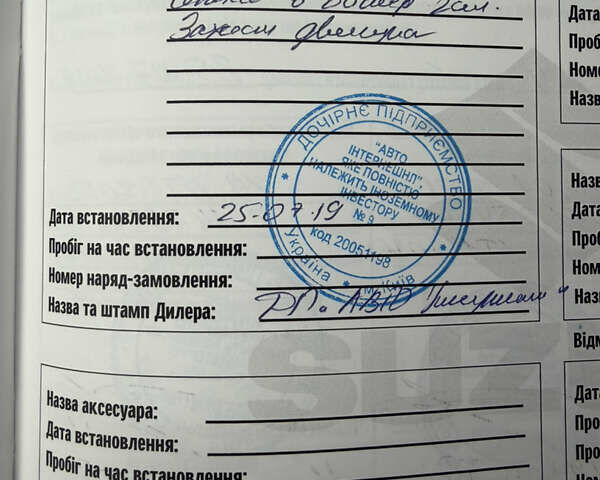 Захист двигуна
Дата встановлення: 25.07.19
Пробіг на час встановлення:
Номер наряд-замовлення:
Назва та штамп Дилера: ДП. "АВТО
ДОЧІРНЄ ПІДПРИЄМСТВО
"АВТО
ІНТЕРНЕШНЛ",
ЯКЕ ПОВНІСТЮ
НАЛЕЖИТЬ ІНОЗЕМНОМУ
ІНВЕСТОРУ
№ 9
КОД 20051198
Україна * м.Київ *
SUZ
Назва аксесуара:
Дата встановлення:
Пробіг на час встановлення:
Дата
Проб
Номе
Назв
Назв
Дата
Проб
Номе
Назв
Відм
Дата
Про
Проб